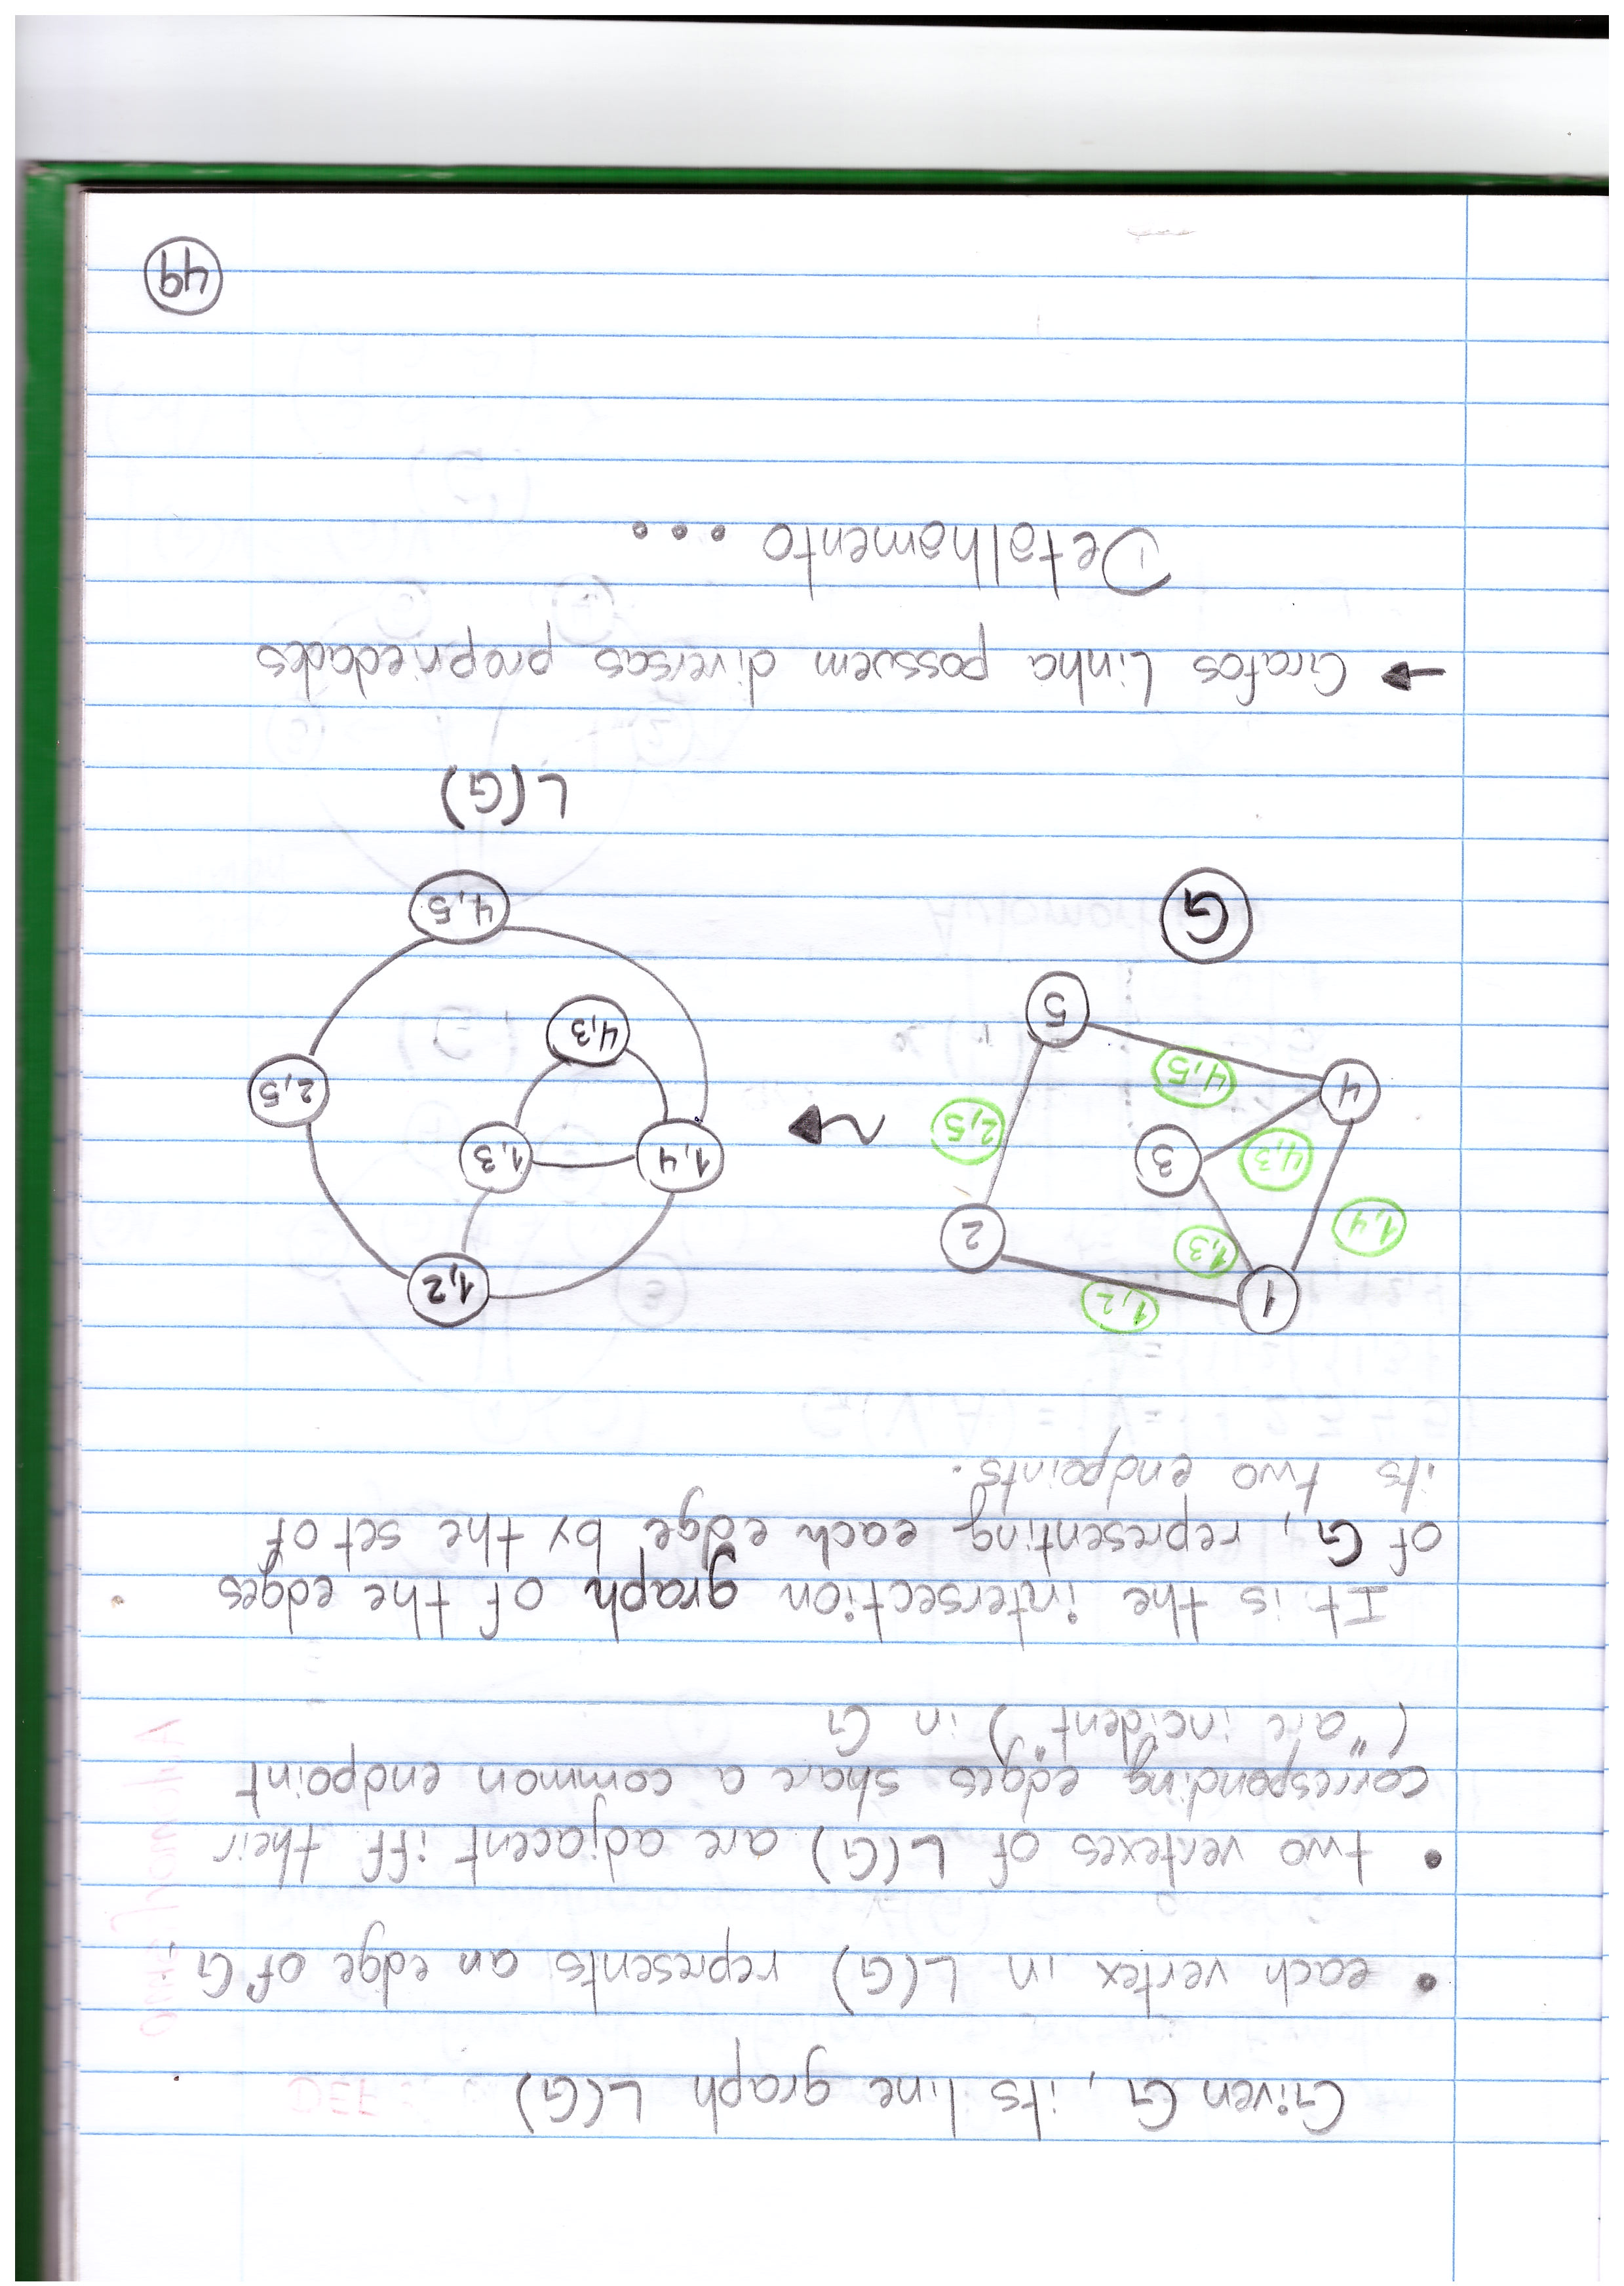 Given G, its line graph L(G)
• each vertex in L(G) represents an edge of G
• two vertexes of L(G) are adjacent iff their
corresponding edges share a common endpoint
("are incident") in G
It is the intersection graph of the edges
of G, representing each edge by the set of
its two endpoints.
1
1,2
2
1,3
1,4
4,3
3
2,5
4
4,5
5
G
1,2
1,4
1,3
2,5
4,3
4,5
L(G)
→ Grafos Linha possuem diversas propriedades
Detalhamento ...
49